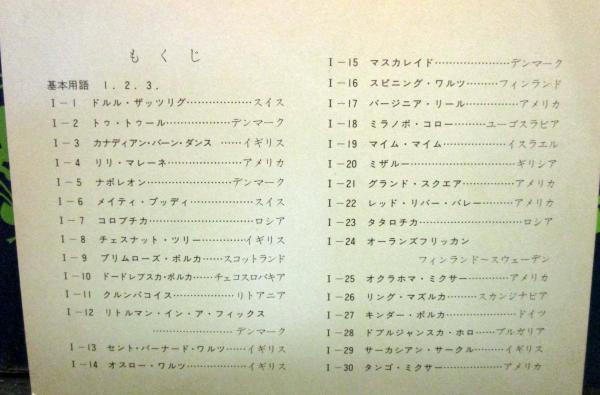 もくじ
基本用語 1.2.3.
I－1 ドルル・ザッツリグ………………スイス
I－2 トゥ・トゥール………………デンマーク
I－3 カナディアン・バーン・ダンス ……イギリス
I－4 リリ・マレーネ…………………アメリカ
I－5 ナポレオン…………………デンマーク
I－6 メイティ・プッディ………………スイス
I－7 コロブチカ………………………ロシア
I－8 チェスナット・ツリー…………イギリス
I－9 プリムローズ・ポルカ……スコットランド
I－10 ドードレブスカ・ポルカ……チェコスロバキア
I－11 クルンパコイス………………リトアニア
I－12 リトルマン・イン・ア・フィックス
………………………デンマーク
I－13 セント・バーナード・ワルツ……イギリス
I－14 オスロー・ワルツ……………イギリス
I－15 マスカレイド…………………デンマーク
I－16 スピニング・ワルツ………フィンランド
I－17 バージニア・リール……………アメリカ
I－18 ミラノボ・コロー………ユーゴスラビア
I－19 マイム・マイム………………イスラエル
I－20 ミザルー…………………………ギリシア
I－21 グランド・スクエア……………アメリカ
I－22 レッド・リバー・バレー………アメリカ
I－23 タタロチカ………………………ロシア
I－24 オーランズフリッカン
フィンランド～スウェーデン
I－25 オクラホマ・ミクサー…………アメリカ
I－26 リング・マズルカ………スカンジナビア
I－27 キンダー・ポルカ………………ドイツ
I－28 ドブルジャンスカ・ホロ……ブルガリア
I－29 サーカシアン・サークル………イギリス
I－30 タンゴ・ミクサー………………アメリカ